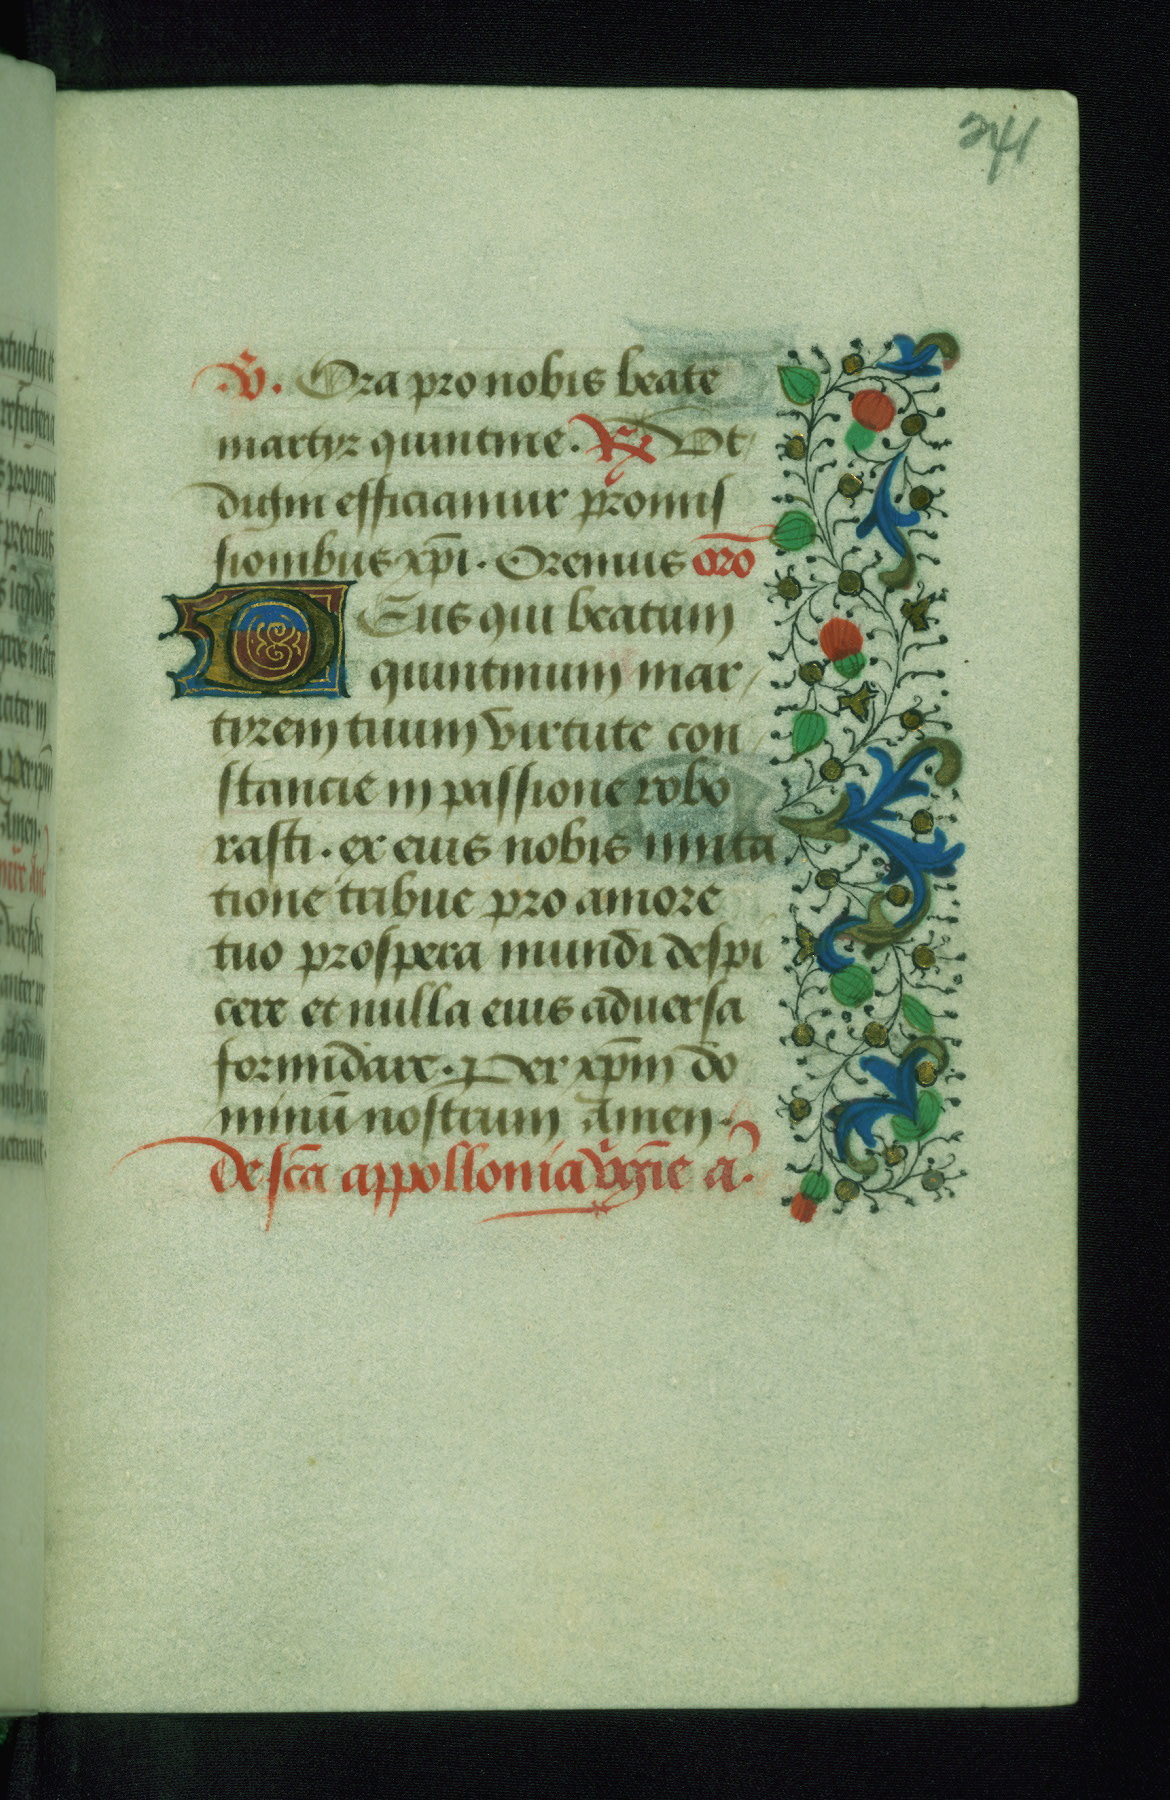 241
V. Ora pro nobis beate
martyr quintine. R Vt
digni efficiamur promis
sionibus xp̄i. Oremus orō
DEus qui beatum
quintinum mar
tyrem tuum virtute con
stancie in passione robo
rasti. ex eius nobis imita
tione tribue pro amore
tuo prospera mundi despi
cere et nulla eius aduersa
formidare. Per xp̄m do
minū nostrum Amen.
De sc̄a appollonia v̄gīe a.